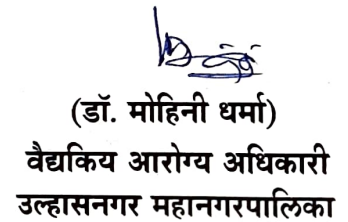 (डॉ. मोहिनी धर्मा)
वैद्यकिय आरोग्य अधिकारी
उल्हासनगर महानगरपालिका